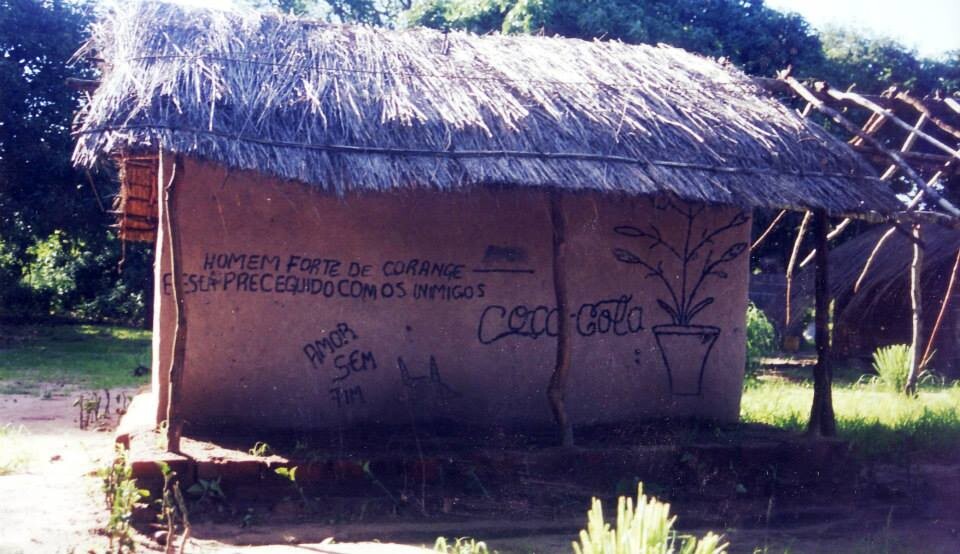 HOMEM FORTE DE CORANGE
ESTÁ PRECEGUIDO COM OS INIMIGOS
COCA-COLA
AMOR
SEM
FIM